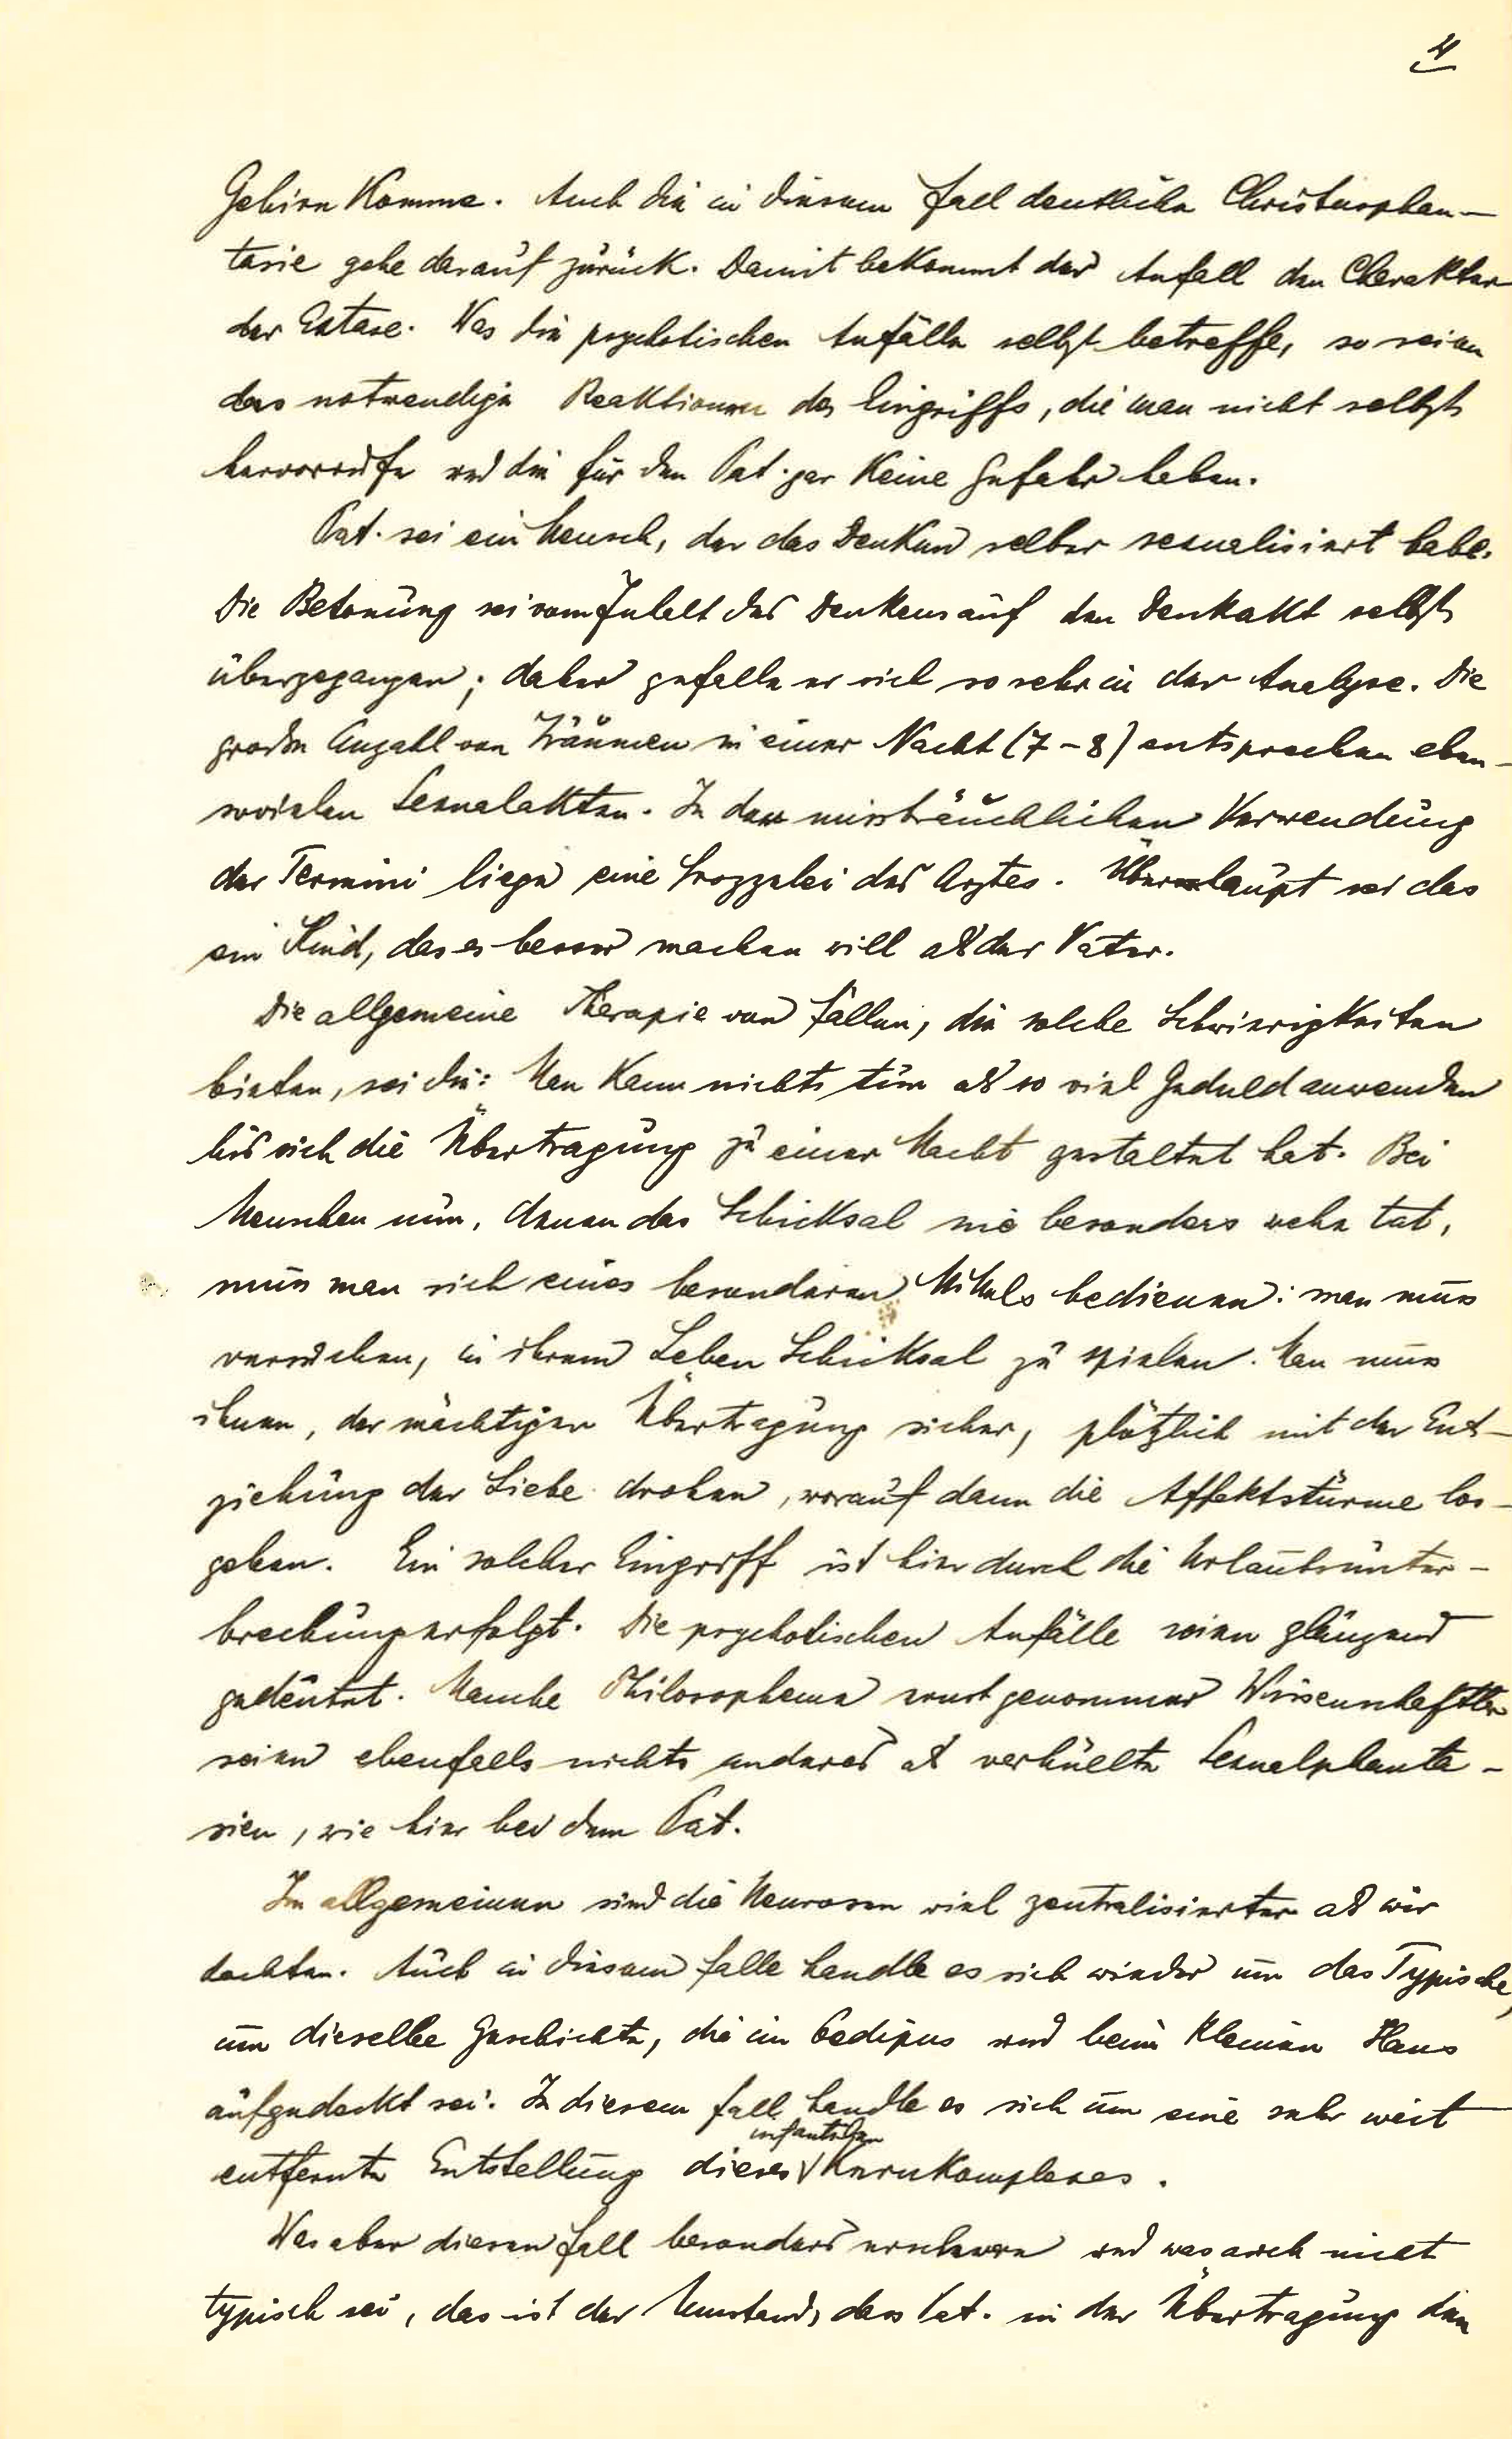 4
Gehirn komme. Auch die in diesem Fall deutliche Christusphan-
tasie gehe darauf zurück. Damit bekommt der Anfall den Charakter
der Extase. Was die psychotischen Anfälle selbst betreffe, so seien
das notwendige Reaktionen des Eingriffs, die man nicht selbst
hervorrufe und die für den Pat. gar keine Gefahr haben.
Pat. sei ein Mensch, der das Denken selber sexualisiert habe.
Die Betonung sei vom Inhalt des Denkens auf den Denkakt selbst
übergegangen; daher gefalle er sich so sehr in der Analyse. Die
große Anzahl von Träumen in einer Nacht (7-8) entsprechen eben-
sovielen Sexualakten. In der missbräuchlichen Verwendung
der Termini liege eine Frozzelei des Arztes. Überhaupt sei das
ein Kind, das es besser machen will als der Vater.
Die allgemeine Therapie von Fällen, die solche Schwierigkeiten
bieten, sei die: Man kann nichts tun als so viel Geduld anwenden
bis sich die Übertragung zu einer Macht gestaltet hat. Bei
Menschen nun, denen das Schicksal nie besonders wehe tat,
muss man sich eines besonderen Mittels bedienen: man muss
versuchen, in ihrem Leben Schicksal zu spielen. Man muss
ihnen, der mächtigen Übertragung sicher, plötzlich mit der Ent-
ziehung der Liebe drohen, worauf dann die Affektstürme los-
gehen. Ein solcher Eingriff ist hier durch die Urlaubsunter-
brechung erfolgt. Die psychotischen Anfälle seien glänzend
gedeutet. Manche Philosopheme ernst genommener Wissenschaftler
seien ebenfalls nichts anderes als verhüllte Sexualphanta-
sien, wie hier bei dem Pat.
Im allgemeinen sind die Neurosen viel zentralisierter als wir
dachten. Auch in diesem Falle handle es sich wieder um das Typische,
um dieselbe Geschichte, die im Oedipus und beim kleinen Hans
aufgedeckt sei. In diesem Fall handle es sich um eine sehr weit
infantilen
entfernte Entstellung dieses Kernkomplexes.
Was aber diesen Fall besonders erschwere und was auch nicht
typisch sei, das ist der Umstand, dass Pat. in der Übertragung den